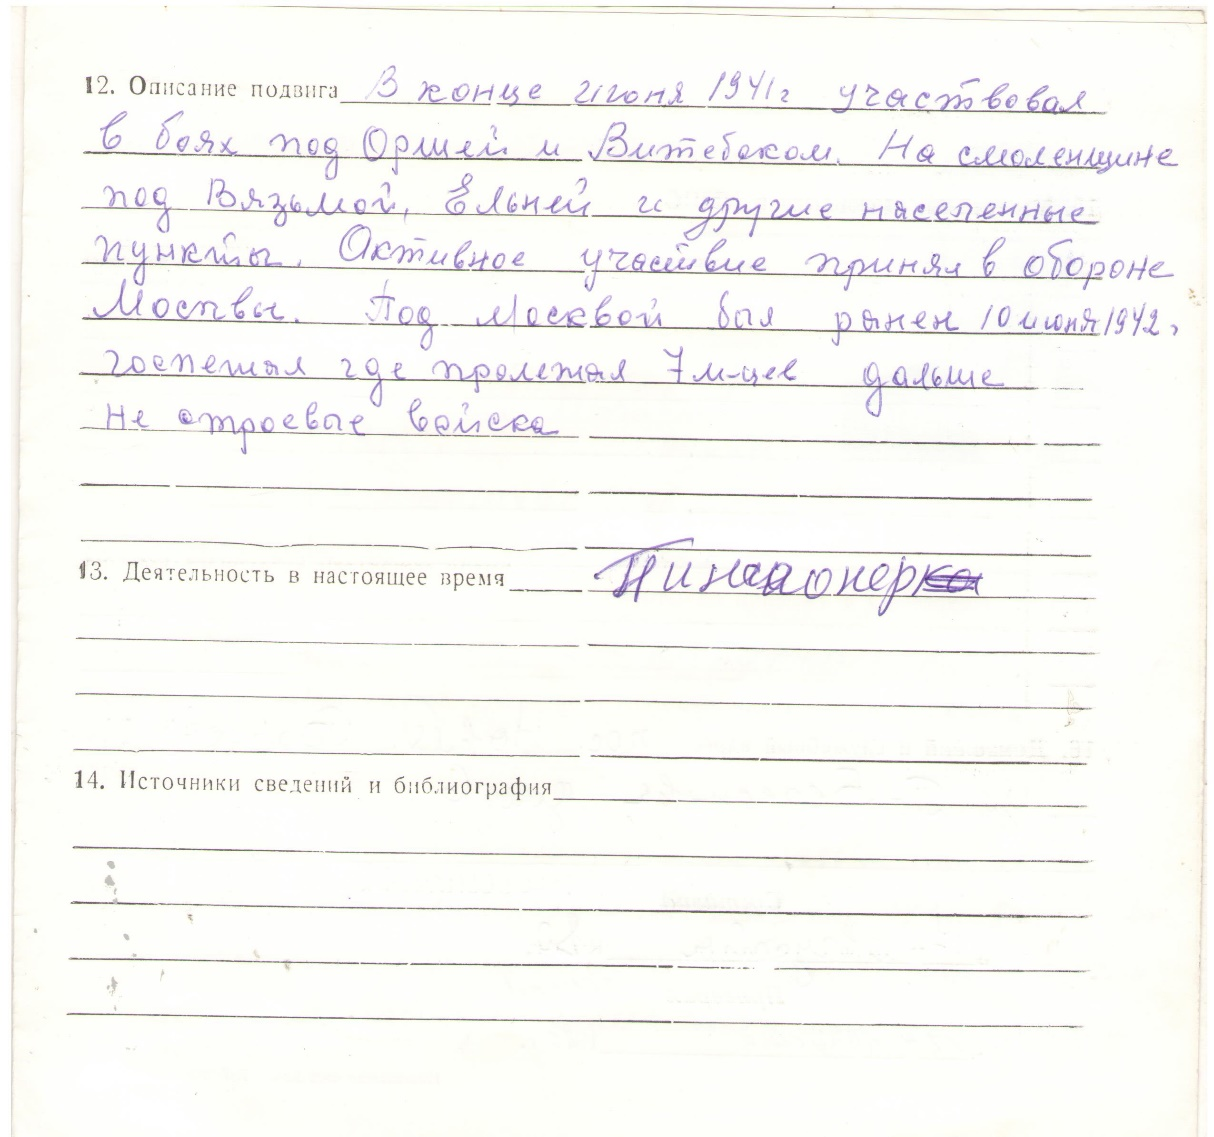 12. Описание подвига В конце июня 1941г участвовал
в боях под Оршей и Витебском. На смоленщине
под Вязьмой, Ельней и другие населенные
пункты. Активное участвие принял в обороне
Мосвы. Под Москвой был ранен 10 июня 1942г
госпеталь где пролежал 7 м-цев дальше
не строевые войска
13. Деятельность в настоящее время Пинсионерка
14. Источники сведений и библиография